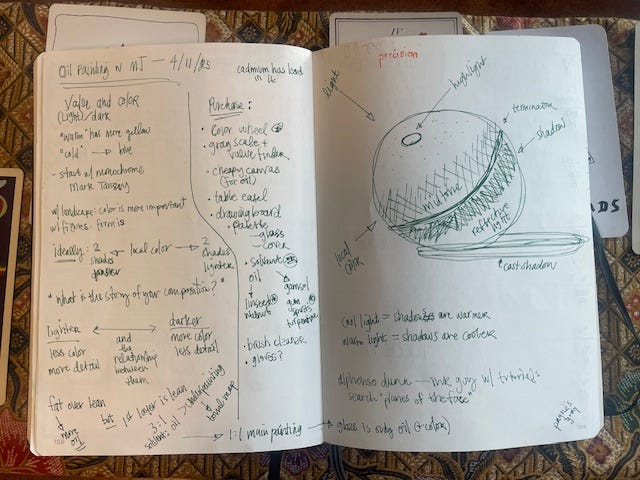 Oil Painting w MJ — 4/11/25
cadmium has lead
in it
Value and color
(Light)/dark
"warm" has more yellow
"cold" → blue
- start w/ monochrome
Mark Tansey
w/ landscape: color is more important
w/ figures: form is
ideally: 2 ← local color → 2
shades
darker
shades
lighter
"What is the story of your composition?"
lighter ↔ darker
less color
more detail
and
the
relationship
between
them
more color
less detail
fat over lean
↓
more
oil
but → 1st layer is lean
3:1 > underpainting
solvent: oil
↓
tonal range
→ 1:1 main painting → glaze is only oil (+ color)
Purchase:
• Color wheel
• gray scale +
value finder
• cheapy canvas
(for oil)
• table easel
• drawing board
palette
→ glass
cover
• solvents
oil
↓
linseed
walnut
gamsol
gum
turpentine
• brush cleaner
• gloves?
precision
light
highlight
terminator
shadow
midtone
reflective
light
local
color
cast shadow
cool light = shadows are warmer
warm light = shadows are cooler
alphonso dunn — nice guy w/ tutorials
search "planes of the face"
payne's
gray
DS